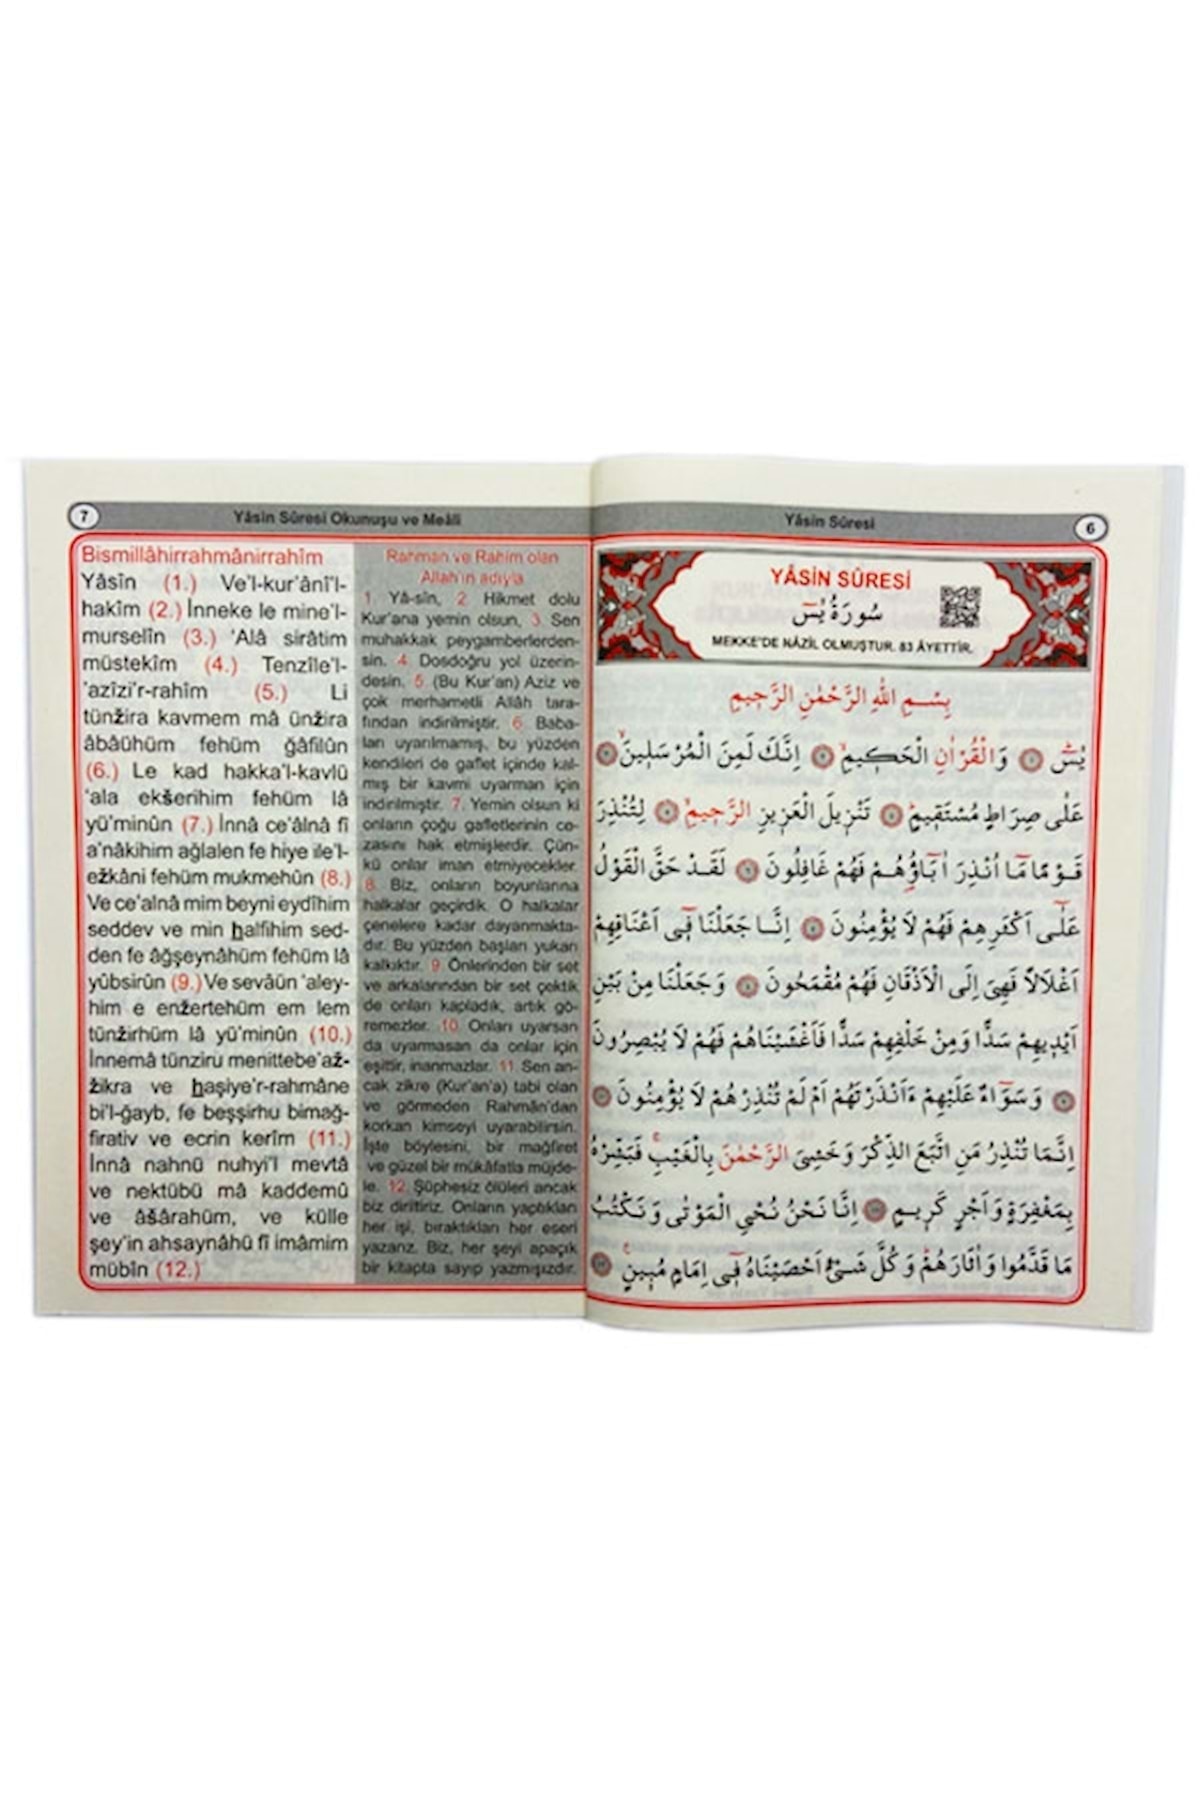 7
Yâsîn Sûresi Okunuşu ve Meâli
Bismillâhirrahmânirrahîm
Yâsîn (1.) Ve'l-kur'ânî'l-
hakîm (2.) İnneke le mine'l-
murselîn (3.) 'Alâ sirâtim
müstekîm (4.) Tenzîle'l-
'azîzi'r-rahîm (5.) Li
tünžira kavmem mâ ünžira
âbâühüm fehüm ğâfilûn
(6.) Le kad hakka'l-kavlü
'ala ekšerihim fehüm lâ
yü'minûn (7.) İnnâ ce'âlnâ fî
a'nâkihim ağlalen fe hiye ile'l-
ežkâni fehüm mukmehûn (8.)
Ve ce'alnâ mim beyni eydîhim
seddev ve min halfihim sed-
den fe âğşeynâhüm fehüm lâ
yûbsirûn (9.) Ve sevâün 'aley-
him e enžertehüm em lem
tünžirhüm lâ yü'minûn (10.)
İnnemâ tünziru menittebe'až-
žikra ve haşiye'r-rahmâne
bi'l-ğayb, fe beşşirhu bimağ-
firativ ve ecrin kerîm (11.)
İnnâ nahnü nuhyi'l mevtâ
ve nektübü mâ kaddemû
ve âšârahüm, ve külle
şey'in ahsaynâhü fî imâmim
mübîn (12.)
Rahman ve Rahim olan
Allah'ın adıyla
1. Yâ-sîn, 2. Hikmet dolu
Kur'ana yemin olsun, 3. Sen
muhakkak peygamberlerden-
sin. 4. Dosdoğru yol üzerin-
desin. 5. (Bu Kur'an) Aziz ve
çok merhametli Allâh tara-
fından indirilmiştir. 6. Baba-
ları uyarılmamış, bu yüzden
kendileri de gaflet içinde kal-
mış bir kavmi uyarman için
indirilmiştir. 7. Yemin olsun ki
onların çoğu gafletlerinin ce-
zasını hak etmişlerdir. Çün-
kü onlar iman etmiyecekler.
8. Biz, onların boyunlarına
halkalar geçirdik. O halkalar
çenelere kadar dayanmakta-
dır. Bu yüzden başları yukarı
kalkıktır. 9. Önlerinden bir set
ve arkalarından bir set çektik
de onları kapladık, artık gö-
remezler. 10. Onları uyarsan
da uyarmasan da onlar için
eşittir, inanmazlar. 11. Sen an-
cak zikre (Kur'an'a) tabi olan
ve görmeden Rahmân'dan
korkan kimseyi uyarabilirsin.
İşte böylesini, bir mağfiret
ve güzel bir mükâfatla müjde-
le. 12. Şüphesiz ölüleri ancak
biz diriltiriz. Onların yaptıkları
her işi, bıraktıkları her eseri
yazarız. Biz, her şeyi apaçık
bir kitapta sayıp yazmışızdır.
Yâsîn Sûresi
6
YÂSİN SÛRESİ
سُورَةُ يٰسٓ
MEKKE'DE NÂZİL OLMUŞTUR. 83 ÂYETTİR.
بِسْــمِ اللهِ الرَّحْمٰنِ الرَّحٖيمِ
يٰسٓ ۞١ وَالْقُرْاٰنِ الْحَكٖيمِۙ ۞٢ اِنَّكَ لَمِنَ الْمُرْسَلٖينَۙ ۞٣
عَلٰى صِرَاطٍ مُسْتَقٖيمٍۜ ۞٤ تَنْزٖيلَ الْعَزٖيزِ الرَّحٖيمِۙ ۞٥ لِتُنْذِرَ
قَوْمًا مَٓا اُنْذِرَ اٰبَٓاؤُ۬هُمْ فَهُمْ غَافِلُونَ ۞٦ لَقَدْ حَقَّ الْقَوْلُ
عَلٰٓى اَكْثَرِهِمْ فَهُمْ لَا يُؤْمِنُونَ ۞٧ اِنَّا جَعَلْنَا فٖٓي اَعْنَاقِهِمْ
اَغْلَالًا فَهِيَ اِلَى الْاَذْقَانِ فَهُمْ مُقْمَحُونَ ۞٨ وَجَعَلْنَا مِنْ بَيْنِ
اَيْدٖيهِمْ سَدًّا وَمِنْ خَلْفِهِمْ سَدًّا فَاَغْشَيْنَاهُمْ فَهُمْ لَا يُبْصِرُونَ
۞٩ وَسَوَٓاءٌ عَلَيْهِمْ ءَاَنْذَرْتَهُمْ اَمْ لَمْ تُنْذِرْهُمْ لَا يُؤْمِنُونَ ۞١٠
اِنَّمَا تُنْذِرُ مَنِ اتَّبَعَ الذِّكْرَ وَخَشِيَ الرَّحْمٰنَ بِالْغَيْبِۚ فَبَشِّرْهُ
بِمَغْفِرَةٍ وَاَجْرٍ كَرٖيمٍ ۞١١ اِنَّا نَحْنُ نُحْيِ الْمَوْتٰى وَنَكْتُبُ
مَا قَدَّمُوا وَاٰثَارَهُمْۜ وَكُلَّ شَيْءٍ اَحْصَيْنَاهُ فٖٓي اِمَامٍ مُبٖينٍۚ ۞١٢